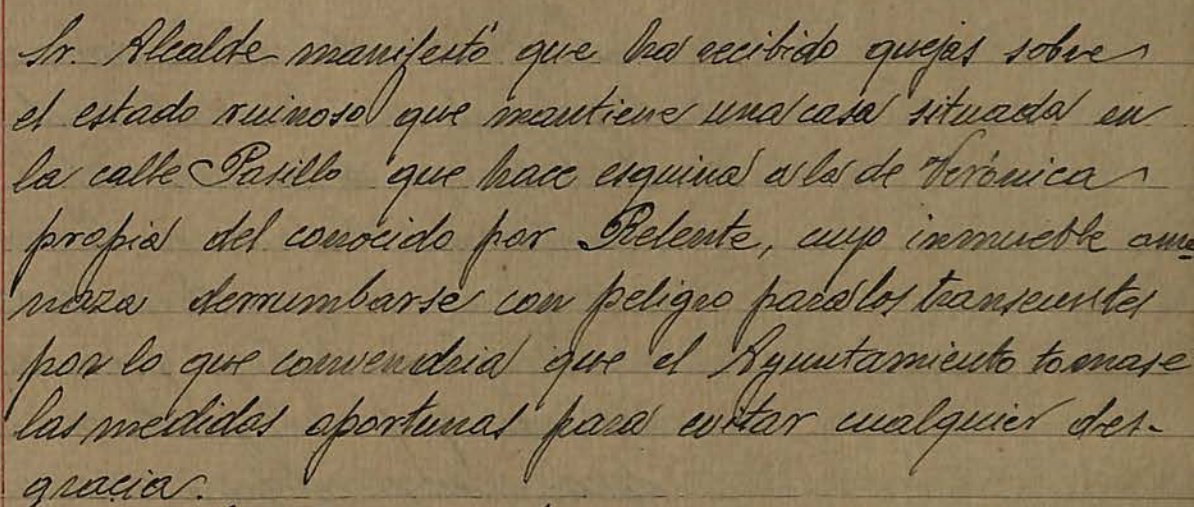 Sr. Alcalde manifestó que ha recibido quejas sobre
el estado ruinoso que mantiene una casa situada en
la calle Pasillo que hace esquina a la de Verónica
propia del conocido por Relente, cuyo inmueble ame
naza derrumbarse con peligro para los transeuntes
por lo que convendria que el Ayuntamiento tomase
las medidas oportunas para evitar cualquier des-
gracia.